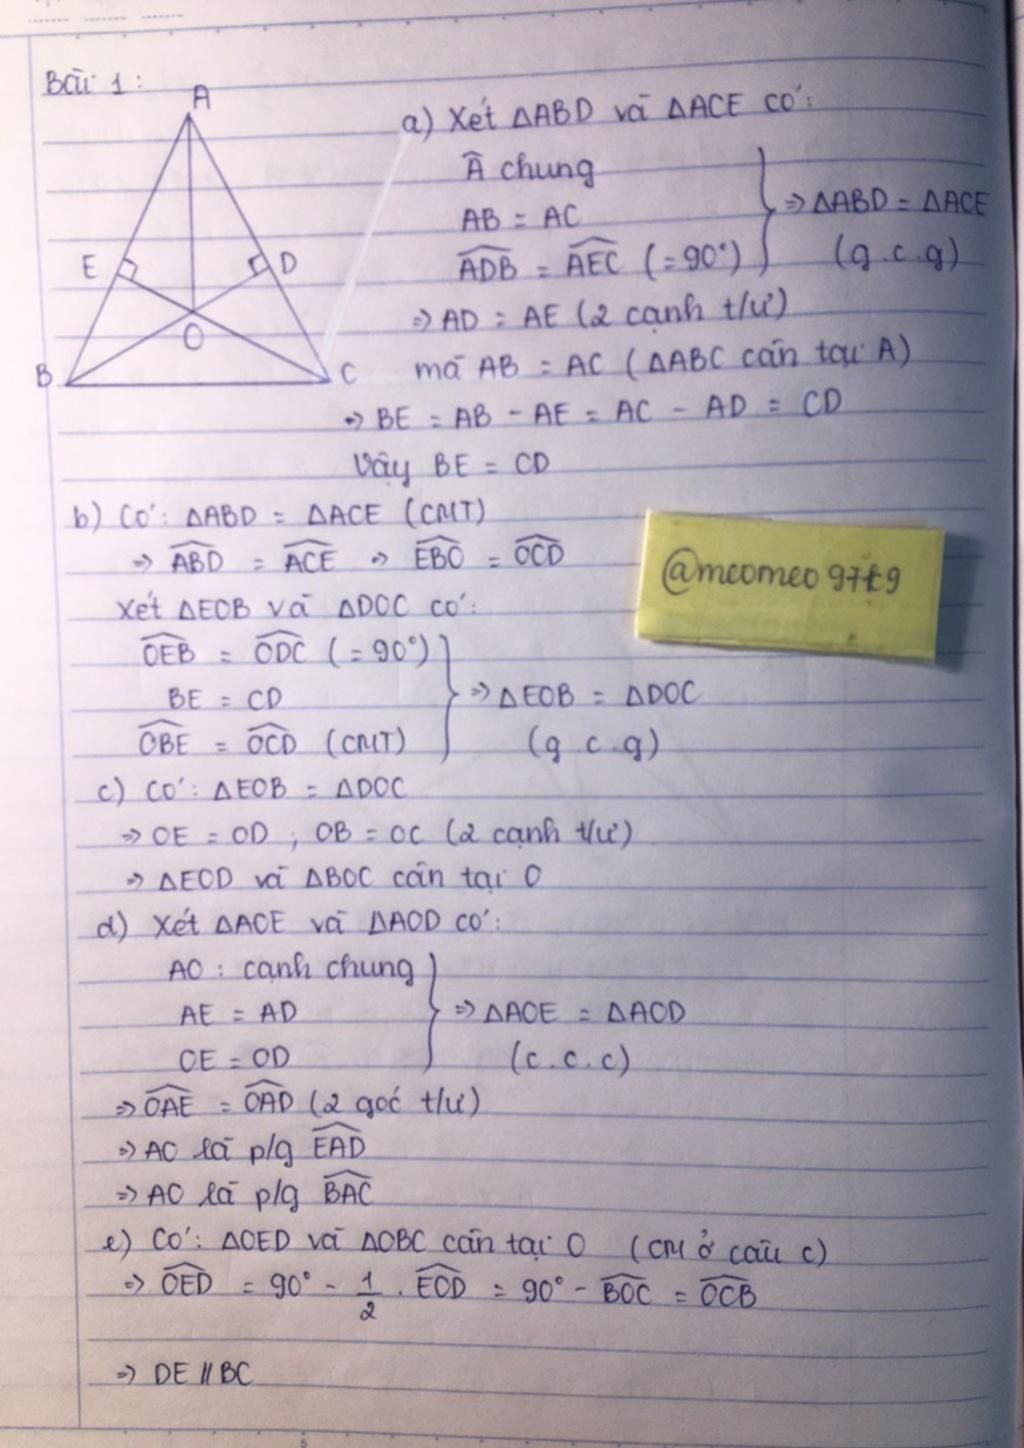 Bài 1:
A
E
D
O
B
C
a) Xét ΔABD và ΔACE có:
Â chung
AB = AC
\widehat{ADB} = \widehat{AEC} (= 90°)
⇒ ΔABD = ΔACE
(g.c.g)
⇒ AD = AE (2 cạnh t/ư)
mà AB = AC (ΔABC cân tại A)
⇒ BE = AB - AE = AC - AD = CD
Vậy BE = CD
b) Có: ΔABD = ΔACE (CMT)
⇒ \widehat{ABD} = \widehat{ACE} ⇒ \widehat{EBO} = \widehat{OCD}
Xét ΔEOB và ΔDOC có:
\widehat{OEB} = \widehat{ODC} (= 90°)
BE = CD
\widehat{OBE} = \widehat{OCD} (CMT)
⇒ ΔEOB = ΔDOC
(g c.g)
@meomeo97t9
c) Có: ΔEOB = ΔDOC
⇒ OE = OD ; OB = OC (2 cạnh t/ư)
⇒ ΔEOD và ΔBOC cân tại O
d) Xét ΔAOE và ΔAOD có:
AO : cạnh chung
AE = AD
OE = OD
⇒ ΔAOE = ΔAOD
(c.c.c)
⇒ \widehat{OAE} = \widehat{OAD} (2 góc t/ư)
⇒ AO là p/g \widehat{EAD}
⇒ AO là p/g \widehat{BAC}
e) Có: ΔOED và ΔOBC cân tại O (CM ở câu c)
⇒ \widehat{OED} = 90° - 1/2 . \widehat{EOD} = 90° - \widehat{BOC} = \widehat{OCB}
⇒ DE // BC